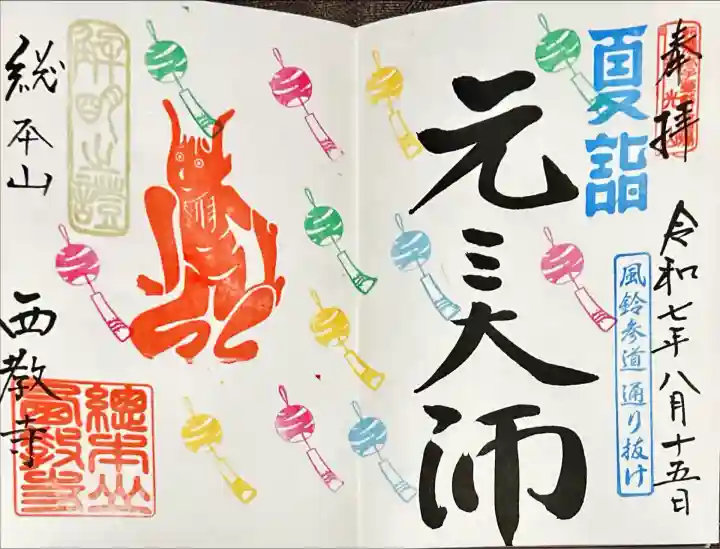 奉拝
令和七年八月十五日
夏詣
風鈴参道通り抜け
元三大師
総本山
西教寺
總本山西教寺